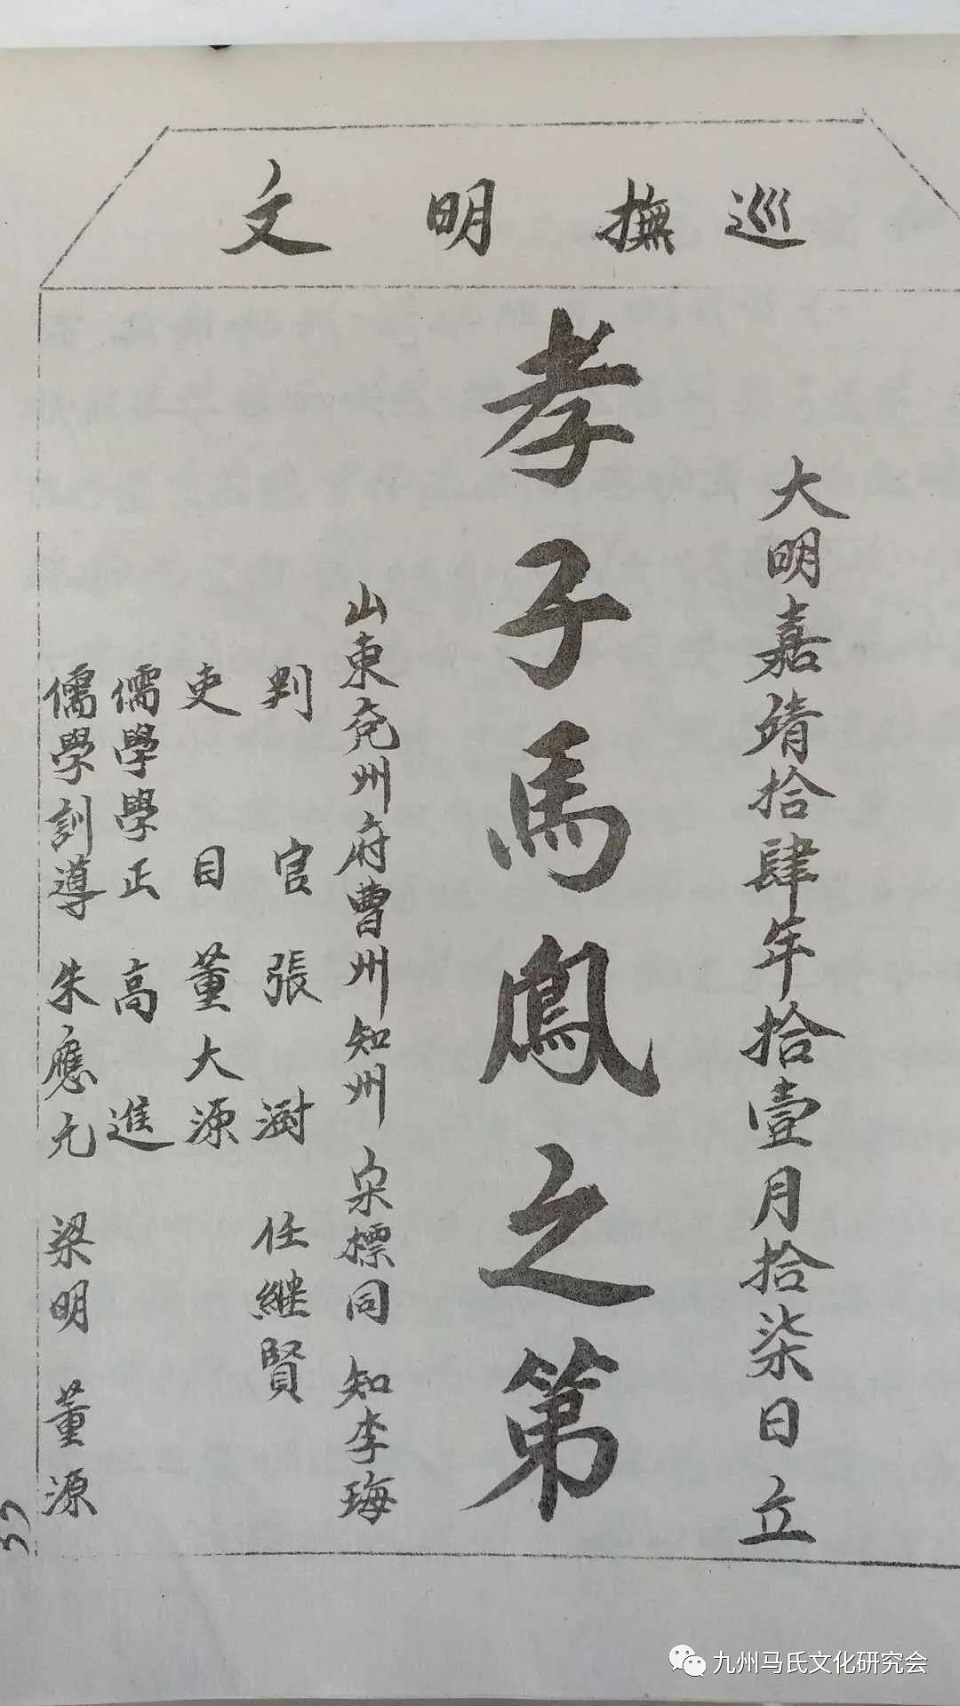 巡撫明文
大明嘉靖拾肆年拾壹月拾柒日立
孝子馬鳳之第
山東兖州府曹州知州宋標同知李海
判官張澍任繼賢
吏目董大源
儒學學正高進
儒學訓導朱應元梁明董源
39
九州马氏文化研究会